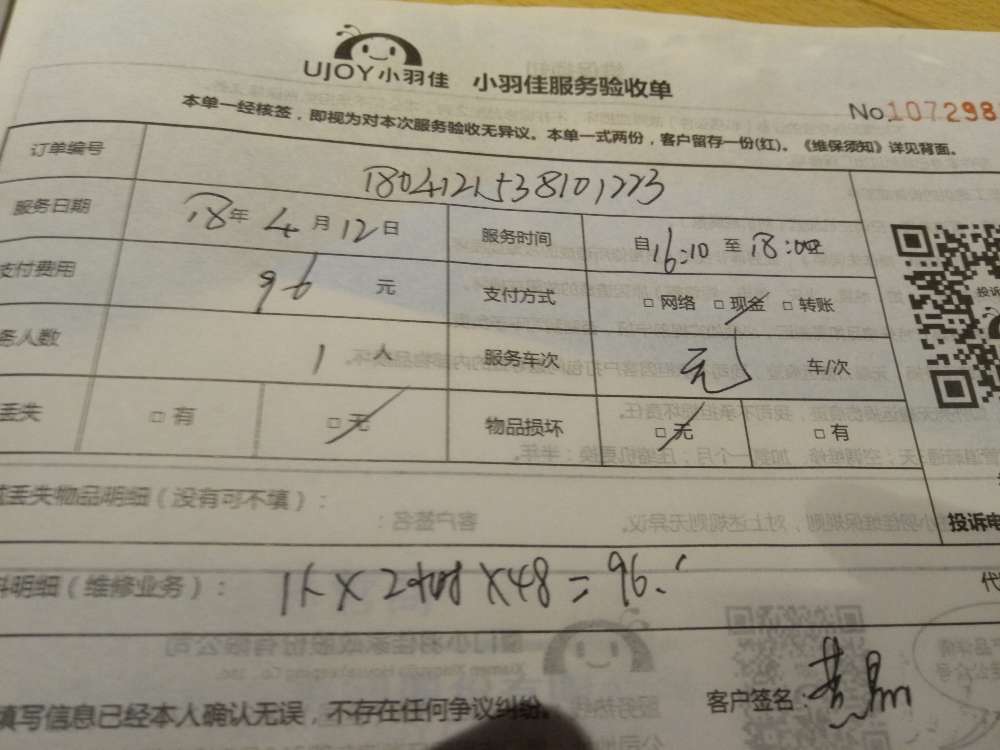 UJOY小羽佳 小羽佳服务验收单
No.107298
本单一经核签，即视为对本次服务验收无异议。本单一式两份，客户留存一份(红)。《维保须知》详见背面。
订单编号 1804121538101223
服务日期 18年4月12日 服务时间 自16:10至18:00
支付费用 96元 支付方式 □网络 □现金 □转账
务人数 1人 服务车次 无 车/次
丢失 □有 □无 物品损坏 □无 □有
丢失物品明细（没有可不填）：
投诉
投诉电
料明细（维修业务）： 1人×2小时×48=96.
代
客户签名：
填写信息已经本人确认无误，不存在任何争议纠纷。